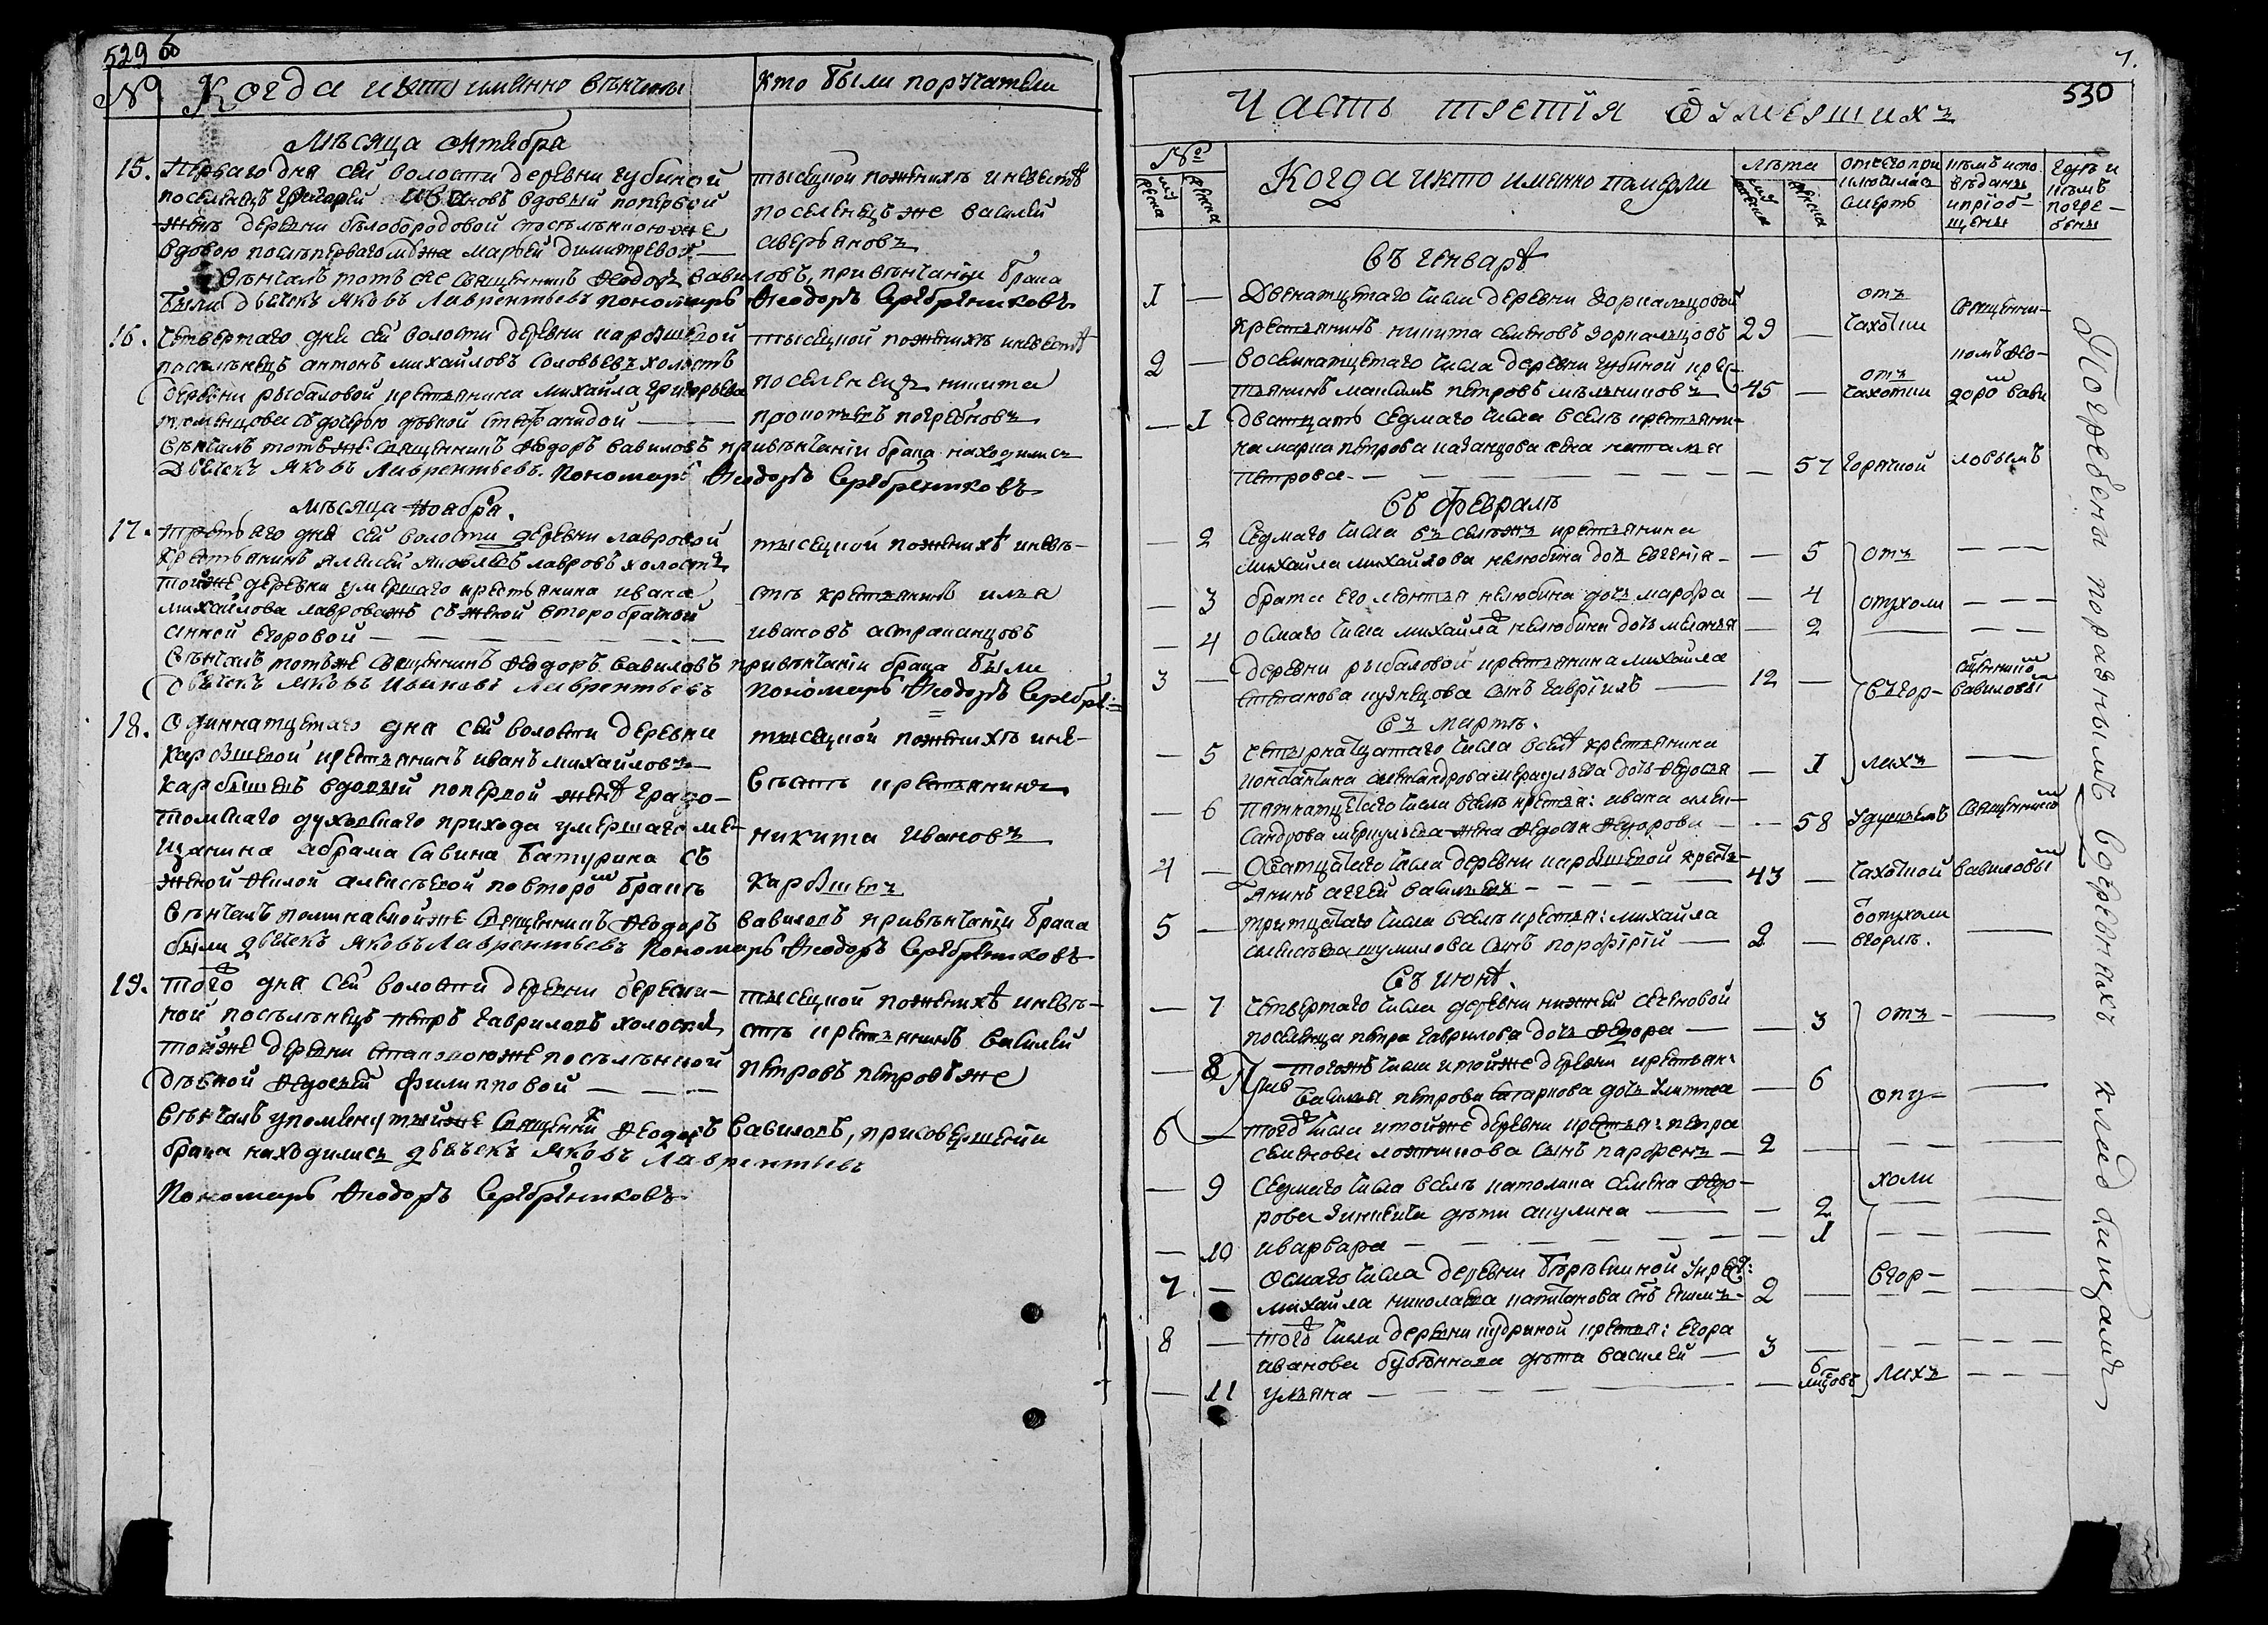 529 об
№ Когда и кто имянно венчаны
Кто были поручатели
Месяца октября
15. Перваго дня сей волости деревни губиной
поселенецъ григорей ивановъ вдовый по первой
жене деревни белобородовой споселенною же
вдовою после перваго мужа марьей димитревой
Венчалъ тотъ же священникъ Феодоръ вавиловъ, при венчании брака
были дьячекъ Яковъ Лаврентьевъ пономарь Феодоръ Серебрениковъ
тысецкой пожениху и невесте
поселенецъ же василей
аверьяновъ
16. Четвертаго дня сей волости деревни каробищевой
поселенецъ антонъ михайловъ Соловьевъ холостъ
деревни рыбаловой крестьянина михайла григорьева
съ дочерью девкой степанидой
Венчалъ тотъ же священникъ Феодоръ вавиловъ при венчании брака находились
Дьячекъ Яковъ Лаврентьевъ. Пономарь Феодоръ Серебрениковъ
тысецкой пожениху и невесте
поселенецъ никита
погребновъ
месяца ноября.
17. третьяго дня сей волости деревни лавровой
крестьянинъ алексей яковлевъ лавровъ холостъ
той же деревни умершаго крестьянина ивана
михайлова лаврова съ женой второбрачной
анной егоровой
Венчалъ тотъ же священникъ Феодоръ вавиловъ при венчании брака были
дьячекъ Яковъ Лаврентьевъ Пономарь Феодоръ Серебре=
тысецкой пожениху и неве-
сте крестьянинъ илья
ивановъ астраханцовъ
18. Одиннатцетаго дня сей волости деревни
каробищевой крестьянинъ иванъ михайловъ
каробищевъ вдовый по первой жене градо-
томскаго духовскаго прихода умершаго ме-
щанина абрама савина батурина съ
женой акилой алексеевой по второмъ браке
Венчалъ священникъ Феодоръ вавиловъ при венчании брака
были дьячекъ Яковъ Лаврентьевъ Пономарь Феодоръ Серебрениковъ
тысецкой пожениху и не-
весте крестьянинъ
никита ивановъ
каробищевъ
19. того дня сей волости деревни берески-
ной поселенецъ петръ гавриловъ холостъ
той же деревни споселенской
девкой федосьей филипповой
Венчалъ упомянутый же священникъ Феодоръ вавиловъ, при совершении
брака находились дьячекъ Яковъ Лаврентьевъ
Пономарь Феодоръ Серебрениковъ
тысецкой пожениху и неве-
сте крестьянинъ василей
петровъ петровъ же
7.
530
Часть третія о умершихъ
№
мужеска
женска
Когда и кто именно померли
лета
мужеска
женска
отчего при
ключилась
смерть
кемъ испо
веданы
и приоб-
щены
где и
кемъ
погре-
бены
Въ генваре
1 — Двенатцетаго числа деревни зоркальцовой
крестьянинъ никита семеновъ зоркальцовъ 29 — отъ чахотки
священни-
2 — восемнатцетаго числа деревни губиной кре-
стьянинъ максимъ петровъ мельниковъ 45 — отъ чахотки
комъ Фео-
доромъ вави
— 1 двадцать седмаго числа в селе крестьяни-
на марка петрова казанцова жена наталья
петрова — 57 горячкой ловымъ
Въ Феврале
— 2 Седмаго числа въ селе же крестьянина
михайла михайлова нелюбина дочь евгенія — 5 отъ
— 3 брата его леонтья нелюбина дочь марфа — 4 опухоли
— 4 осмаго числа михайла нелюбина дочь меланья — 2
3 — деревни рыбаловой крестьянина михайла
степанова кузнецова сынъ гавріилъ 12 — въ гор-
священникомъ
вавиловымъ
Въ марте.
— 5 четырнатцатаго числа в селе крестьянина
константина александрова меркульева дочь федосья — 1 лихъ
— 6 Пятнатцетаго числа в селе крестья: ивана алек-
сандрова меркульева жена федосья федорова — 58 удушьемъ священникомъ
4 — Дватцетаго числа деревни каробищевой кресть-
янинъ аггей васильевъ 43 — чахоткой вавиловымъ
5 — тритцетаго числа в селе крестья: михайла
алексеева шумилова сынъ порфірій 2 — опухоли
въ горле.
Въ июне.
— 7 четвертаго числа деревни нижней сеченовой
поселенца петра гаврилова дочь федора — 3 отъ
— 8 того же числа и той же деревни крестьян:
василья петрова дочь — 6 опу-
6 — того числа и той же деревни крестья: петра
семенова ложникова сынъ парфенъ 2 —
— 9 Седмаго числа в селе католика семена федо-
рова зинкевича дети акулина — 2 холи
— 10 и варвара — 1
7 — осмаго числа деревни берескиной у крест:
михайла николаева капитанова сынъ 2 — въ гор-
8 — того числа деревни кудриной крестья: егора
иванова бубенкова дети василей 3 —
— 11 ульяна — 6 месяцовъ лихъ
Погребены по разнымъ въ деревняхъ кладбищамъ